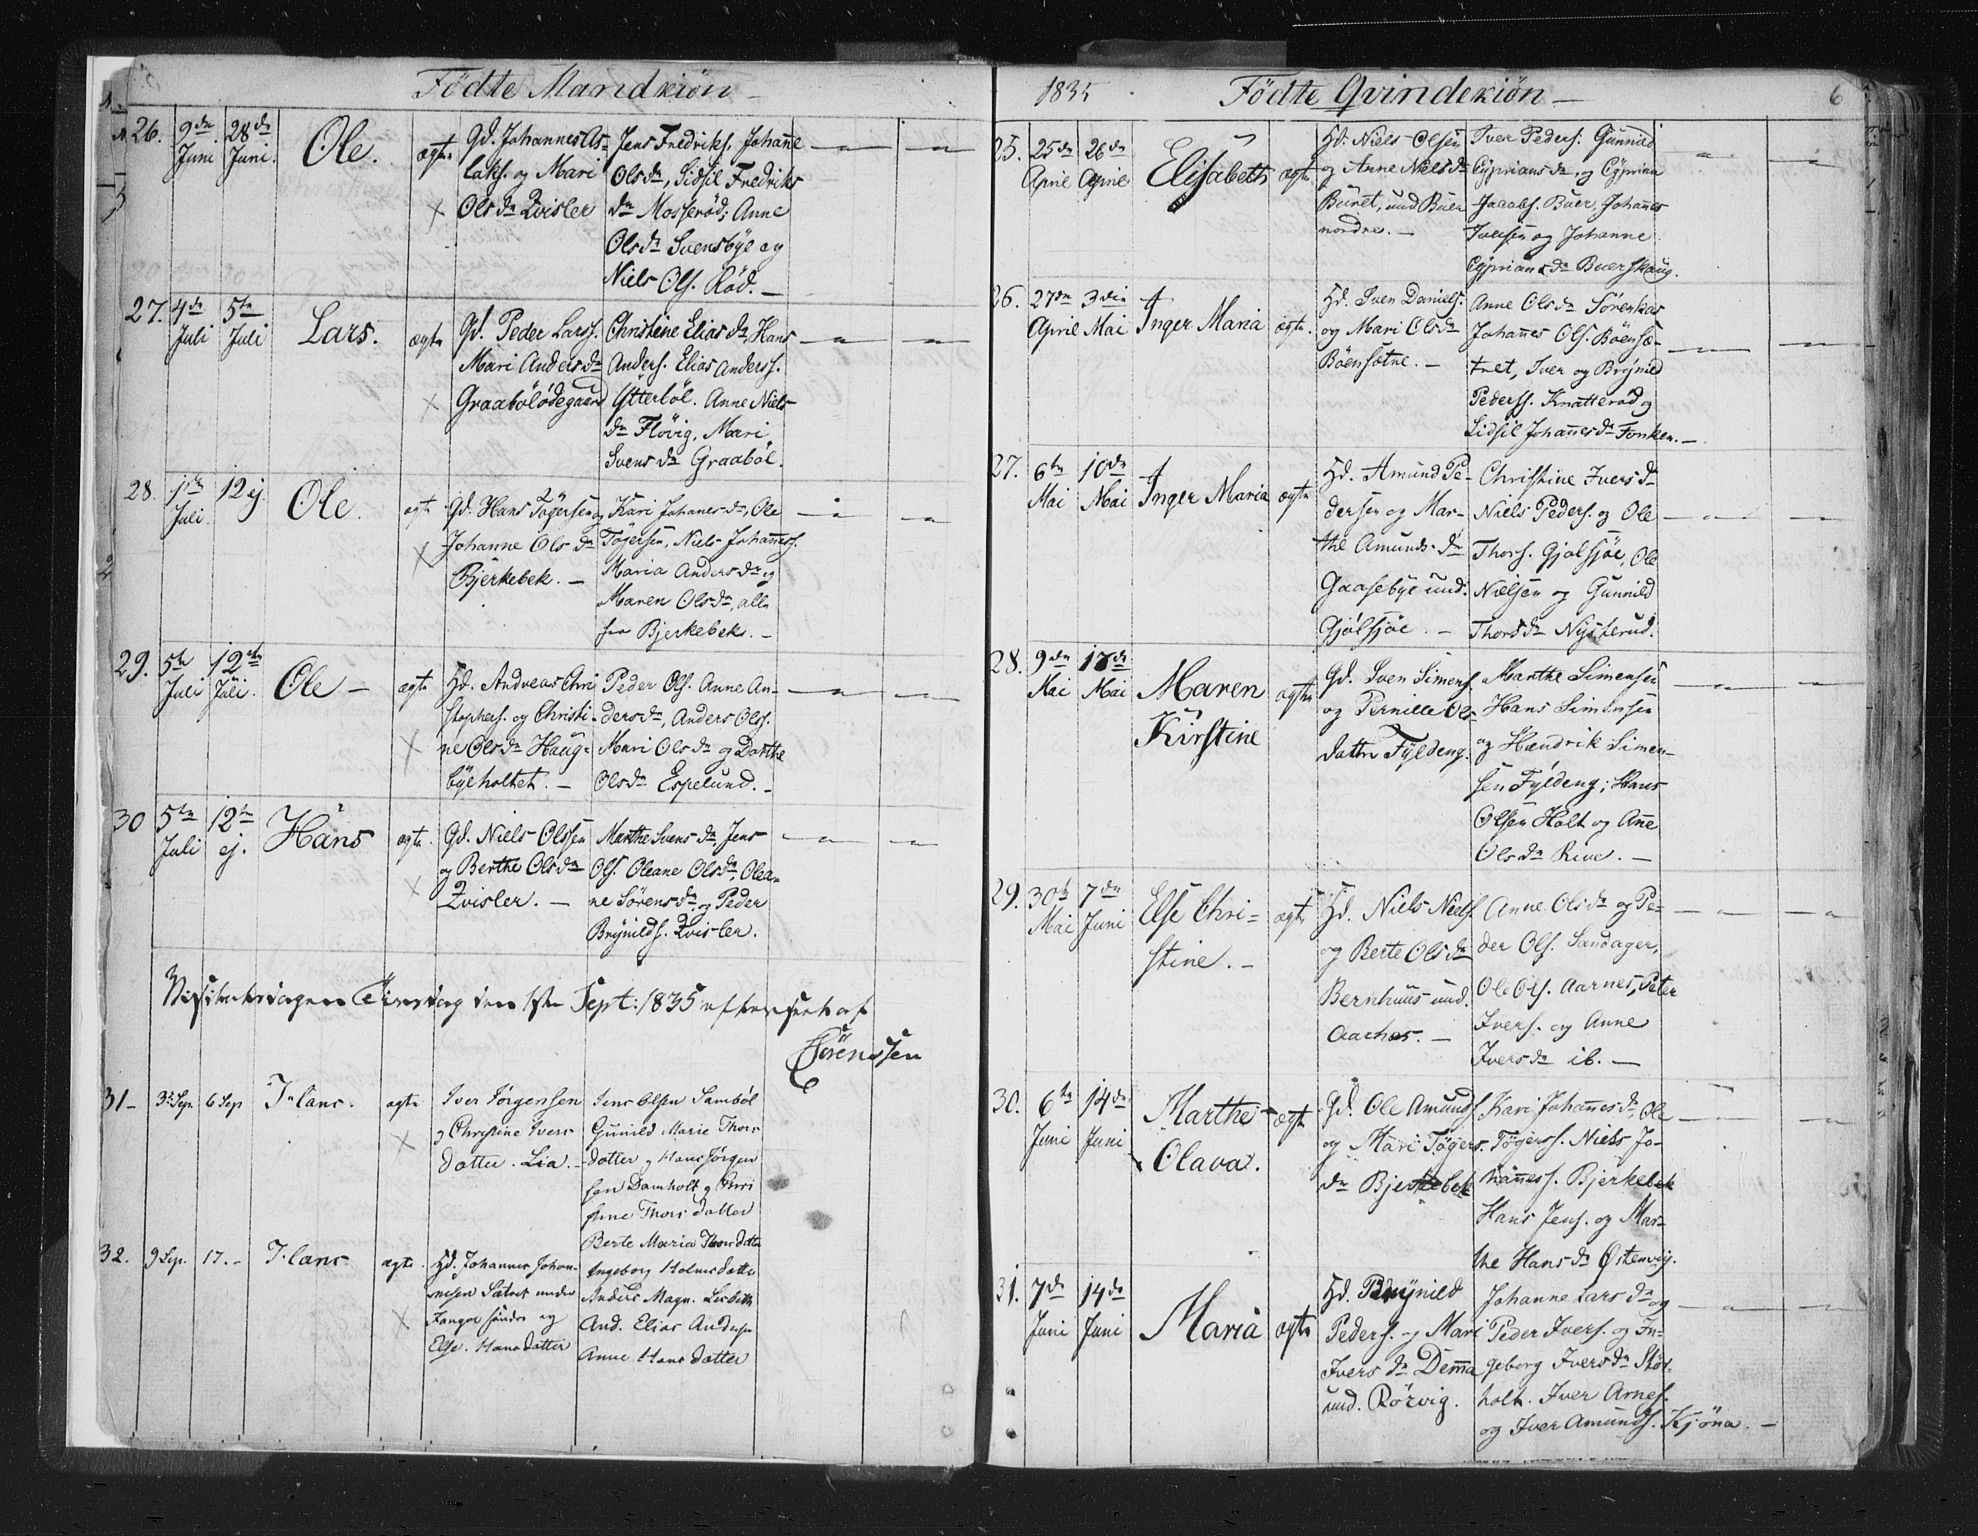 Födte Mandkiön
26. 9de Juni 28de Juni. Ole. ægte
Gd. Johannes As-
laks. og Mari
Olsdr Qvisler
Jens Fredriks. Johanne
Olsdr, Sidsil Fredriks
dr Mosserød; Anne
Olsdr Svensbye og
Niels Ols. Röd. —
27. 4de Juli 5te Juli Lars. ægte
Gd. Peder Larss.
Mari Andersdr
Graabölödegaard
Christine Eliasdr, Hans
Anders. Elias Anderss.
Ytterböl. Anne Niels-
dr Flövig, Mari
Svensdr Graaböl.
28. 1ste Juli. 12 ej. Ole. ægte
Gd. Hans Tögersen og
Johanne Olsdr
Bjerkebek. —
Kari Johanesdr, Ole
Tögersen, Niels Johanness.
Maria Andersdr og
Maren Olsdr, alle
fra Bjerkebek. —
29. 5te Juli 12te Juli. Ole — ægte
Hd. Andreas Chri
stophers. og Christi-
ne Olsdr Haug-
byeholtet. —
Peder Ols. Anne An-
dersdr, Anders Olss.
Mari Olsdr og Dorthe
Olsdr Espelund. —
30 5te Juli 12te ej. Hans ægte.
Gd. Niels Olssen
og Berthe Olsdr
Qvisler. —
Marthe Svensdr, Jens
Ols. Oleane Olsdr, Olea-
ne Sörensdr og Peder
Brynilds. Qvisler.
Visitatsdagen Tirsdag den 1ste Sept: 1835 efterseet af
Sörenssen
31 – 3 Sep. 6 Sep Hans. ægte
Iver Jörgensen
og Christine Ivers
datter. Lia. –
Jens Olsen Damböl
Gunild Marie Thors
datter og Hans Jörgen
sen Damholt og Chri
stine Thors datter
Berte Maria Thorsdatter
32. 9 Sep. 17. – Hans ægte.
Hd. Johannes Johan-
nesen Sätret under
Fanger söndre og
Else. Hansdatter
Ingeborg Holmsdatter
Anders Magn. Lisbeth
And. Elias Anderse
Anne Hansdatter
1835 Födte Qvindekiön — 6
25. 25de April 26de April Elisabeth ægte
Hd. Niels Olsen
og Anne Nielsdr
Buret, und Buer
nordre. —
Iver Peders. Gunnild
Cypriansdr, og Cyprian
Jacobs. Buer, Johannes
Iversen og Johanne
Cypriansdr Buerskaug.
26. 27de April 3die Mai Inger Maria ægte.
Hd. Sven Daniels.
og Mari Olsdr
Böensætne. —
Anne Olsdr Sörenkas
Johannes Ols. Böensæ-
tret, Iver og Brynild
Pederss. Knatteröd og
Sidsil Johannesdr Fonken. —
27. 6te Mai 10de Mai Inger Maria ægte
Hd. Amund Pe-
dersen og Mar-
the Amundsdr
Gaasebye und.
Gjölsjöe. —
Christine Iversdr
Niels Peders. og Ole
Thors. Gjölsjöe, Ole
Nielsen og Gunnild
Thorsdr Nysterud.
28. 9de Mai 17de Mai Maren
Kirstine ægte
Gd. Sven Simens.
og Pernille Ols
datter Fyldeng.
Marthe Simensen
Hans Simensen
og Hændrik Simen-
sen Fyldeng; Hans
Olsen Holt og Ane
Olsdr Rive. —
29. 30te Mai 7de Juni Else Chri-
stine. — ægte
Hd. Niels Niels.
og Berte Olsdr
Bernhuus und.
Aarhas. —
Anne Olsdr og Pe-
der Ols. Sandager,
Ole Ols. Aarnes, Peter
Ivers. og Anne
Iversdr ib. —
30. 6te Juni 14de Juni Marthe
Olava. ægte
Gd. Ole Amunds.
og Mari Tögers.
dr Bjerkebek
Kari Johannesdr, Ole
Tögerss. Niels Jo-
hanness. Bjerkebek
Hans Jens. og Mar-
the Hansdr Østenvig.
31. 7de Juni 14de Juni Maria ægte
Hd. Brynild
Peders. og Mari
Iversdr Demma
und. Rörvig.
Johanne Larsdr og
Peder Ivers. og In-
geborg Iversdr Stör-
holt. Iver Arnes.
og Iver Amunds. Kjöna. —